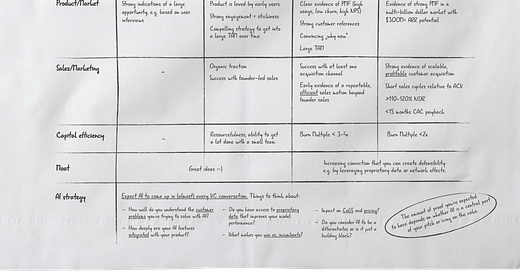 Product/Market
Strong indications of a large
opportunity, e.g. based on user
interviews
Product is loved by early users
Strong engagement + stickiness
Compelling strategy to get into
a large TAM over time
Clear evidence of PMF (high
usage, low churn, high NPS)
Strong customer references
Convincing „why now"
Large TAM
Evidence of strong PMF in a
multi-billion dollar market with
$300M+ ARR potential
Sales/Marketing
–
Organic traction
Success with founder-led sales
Success with at least one
acquisition channel
Early evidence of a repeatable,
efficient sales motion beyond
founder sales
Strong evidence of scalable,
profitable customer acquisition
Short sales cycles relative to ACV
>110-120% NDR
<15 months CAC payback
Capital efficiency
–
Resourcefulness, ability to get
a lot done with a small team
Burn Multiple < 3-4x
Burn Multiple <2x
Moat
Great ideas :-)
Increasing conviction that you can create defensibility
e.g. by leveraging proprietary data or network effects.
AI strategy
Expect AI to come up in (almost) every VC conversation. Things to think about:
– How well do you understand the customer
problem you're trying to solve with AI?
– How deeply are your AI features
integrated with your product?
– Do you have access to proprietary
data that improves your model
performance?
– What makes you win vs. incumbents?
– Impact on CoGS and pricing?
– Do you consider AI to be a
differentiator or is it just a
building block?
The amount of proof you're expected
to have depends on whether AI is a central part
of your pitch or icing on the cake.